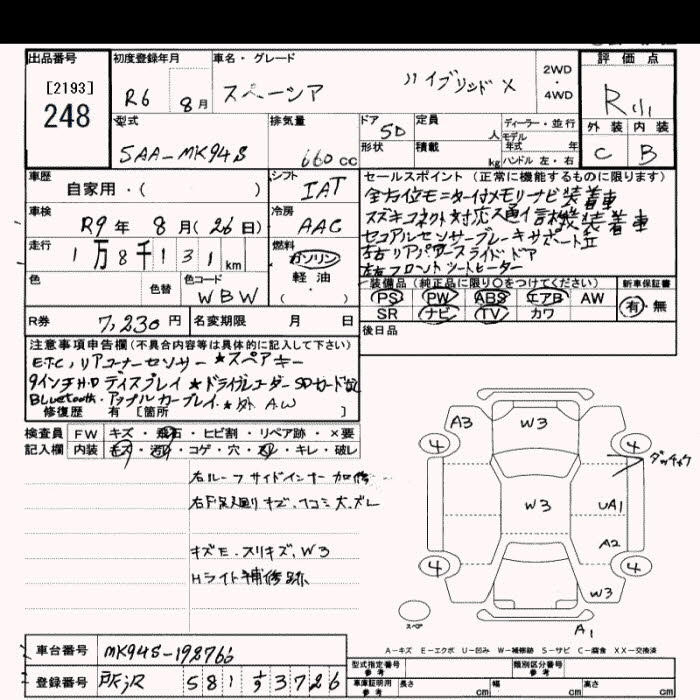 出品番号 初度登録年月 車名・グレード 評価点
[2193]
248
R6 8月 スペーシア ハイブリッド X 2WD・4WD R
型式 排気量 ドア 定員 ディーラー・並行 外装 内装
5AA-MK94S 660cc 5D 人 モデル年式 年 C B
形状 積載 kg ハンドル 左・右
車歴 シフト セールスポイント (正常に機能するものに限ります)
自家用・( ) IAT 全方位モニター付メモリナビ装着車
車検 冷房 スズキコネクト対応通信機装着車
R9年 8月(26日) AAC セコアルセンサーブレーキサポートⅡ
走行 燃料 左右リアパワースライドドア
1万8千131km ガソリン 左右フロントシートヒーター
色 色替 色コード 軽油 装備品(純正品に限り○をつけてください) 新車保証書
WBW ・( ) PS PW ABS エアB AW 有・無
SR ナビ TV カワ
R券 7,230円 名変期限 月 日 後日品
注意事項申告欄(不具合内容等は具体的に記入して下さい)
ETC, リアコーナーセンサー ★スペアキー
9インチHDディスプレイ ★ドライブレコーダー SDカード
Bluetooth・アップルカープレイ・★外A.W
修復歴 有 [箇所 ]
検査員 FW キズ・飛石・ヒビ割・リペア跡・×要
記入欄 内装 キズ・汚れ・コゲ・穴・・キレ・破レ
右ルーフサイドインナー加修
キズE.スリキズ, W3
Hライト補修跡
A3 W3
4 4 ダッチャク
W3 UA1
A2
4 4
W3
スペア A1
A−キズ E−エクボ U−凹み W−補修跡 S−サビ C−腐食 XX−交換済
車台番号 MK94S-198766
登録番号 581 3726
型式指定番号 参考 類別区分番号 参考
車庫証明用 参考 長さ cm 幅 cm 高さ cm